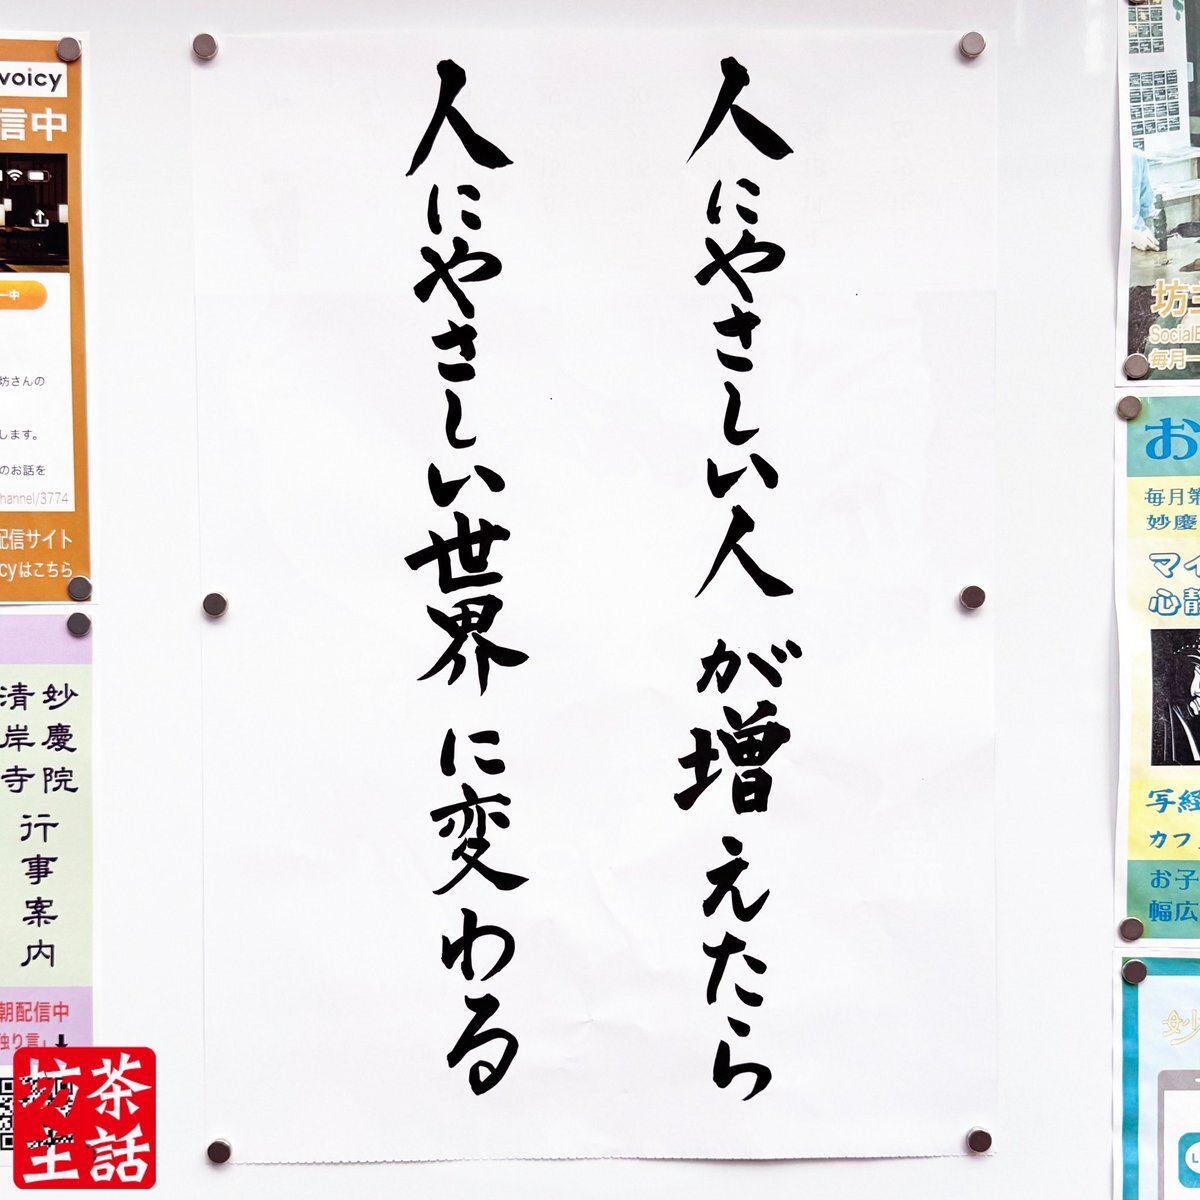 人にやさしい人が増えたら
人にやさしい世界に変わる
voicy
信中
一中
坊さんの
します。
のお話を
hannel/3774
配信サイト
cyはこちら
妙慶院
清岸寺
行事案内
朝配信中
独り言」
茶話
坊主
坊主
SocialE
毎月一
お
毎月第
妙慶
マイ
心静
写経
カフ
お子
幅広
妙
L